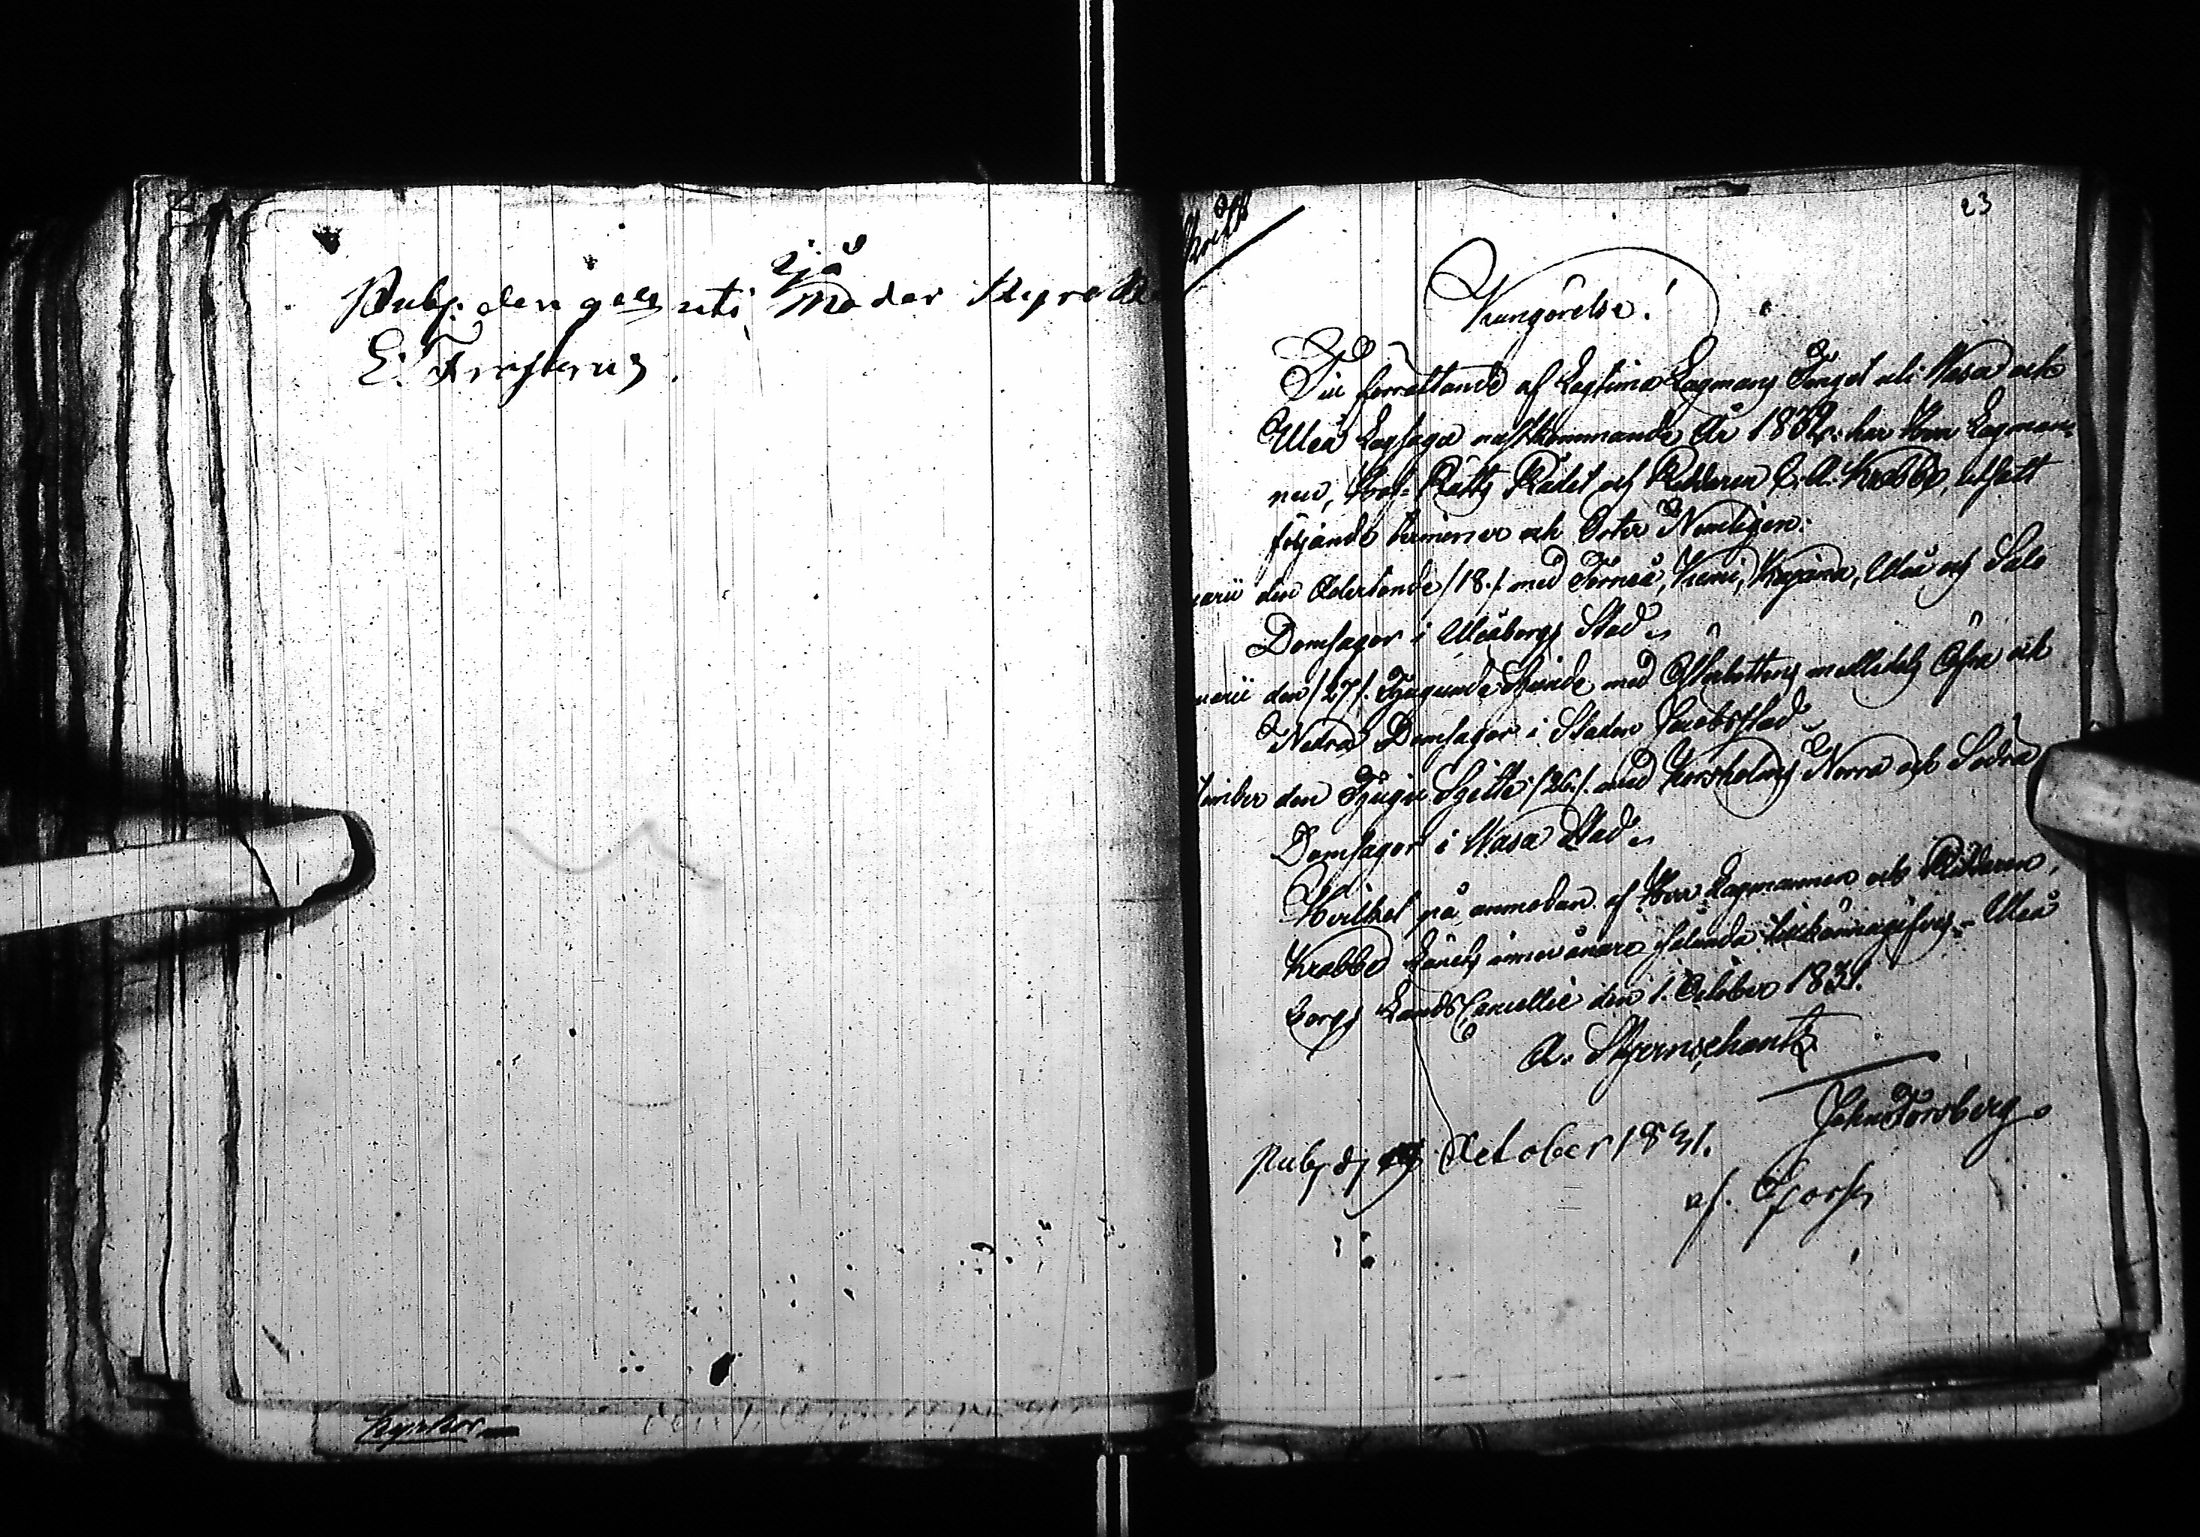 Publ: den 9 uti Ijå Moder Kyrcka
E. Frosterus.
Kyrkor.
23
Kungörelse!
Till förrättande af Lagtima Lagmans Tinget uti Wasa och
Uleå Lagsaga nästkommande År 1832. har Herr Lagman-
nen, Hof-Rätts Rådet och Riddaren C. A. Krabbe, utsatt
följande terminer och Orter Nemligen:
uarii den Adertonde /18./ med Torneå, Kemi, Kajana, Uleå och Salo
Domsagor i Uleåborgs Stad.
uarii den /27/. Tjugunde Sjunde med Österbottens mellersta Öfre och
Nedra Domsagor i Staden Jacobsstad
tember den Tjugu Sjette /26/. med Korsholms Norra och Södra
Domsagor i Wasa Stad.
Hvilket på anmodan af Herr Lagmannen och Riddaren,
Krabbe Länets innevånare sålunda tillkännagifves. Uleå
borgs Lands Cancellie den 1. October 1831.
A. Stjernschantz
Johan Forsberg.
Publ. d. October 1831.
af.